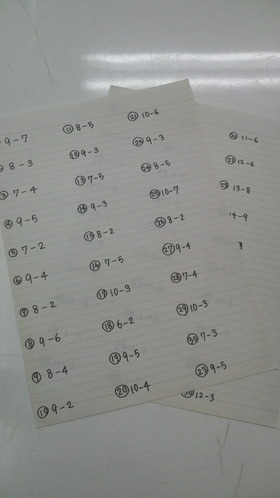 9-7
② 8-3
③ 7-4
④ 9-5
⑤ 7-2
⑥ 9-4
⑦ 8-2
⑧ 9-6
⑨ 8-4
⑩ 9-2
⑪ 8-5
⑫ 9-3
⑬ 7-5
⑭ 9-3
⑮ 8-2
⑯ 7-5
⑰ 10-3
⑱ 6-2
⑲ 9-5
⑳ 10-4
㉑ 10-6
9-3
㉔ 8-5
10-7
㉖ 8-2
㉗ 9-4
㉘ 7-4
㉙ 10-3
㉚ 7-3
㉓ 9-5
11-6
12-6
13-8
14-9
3
12-3